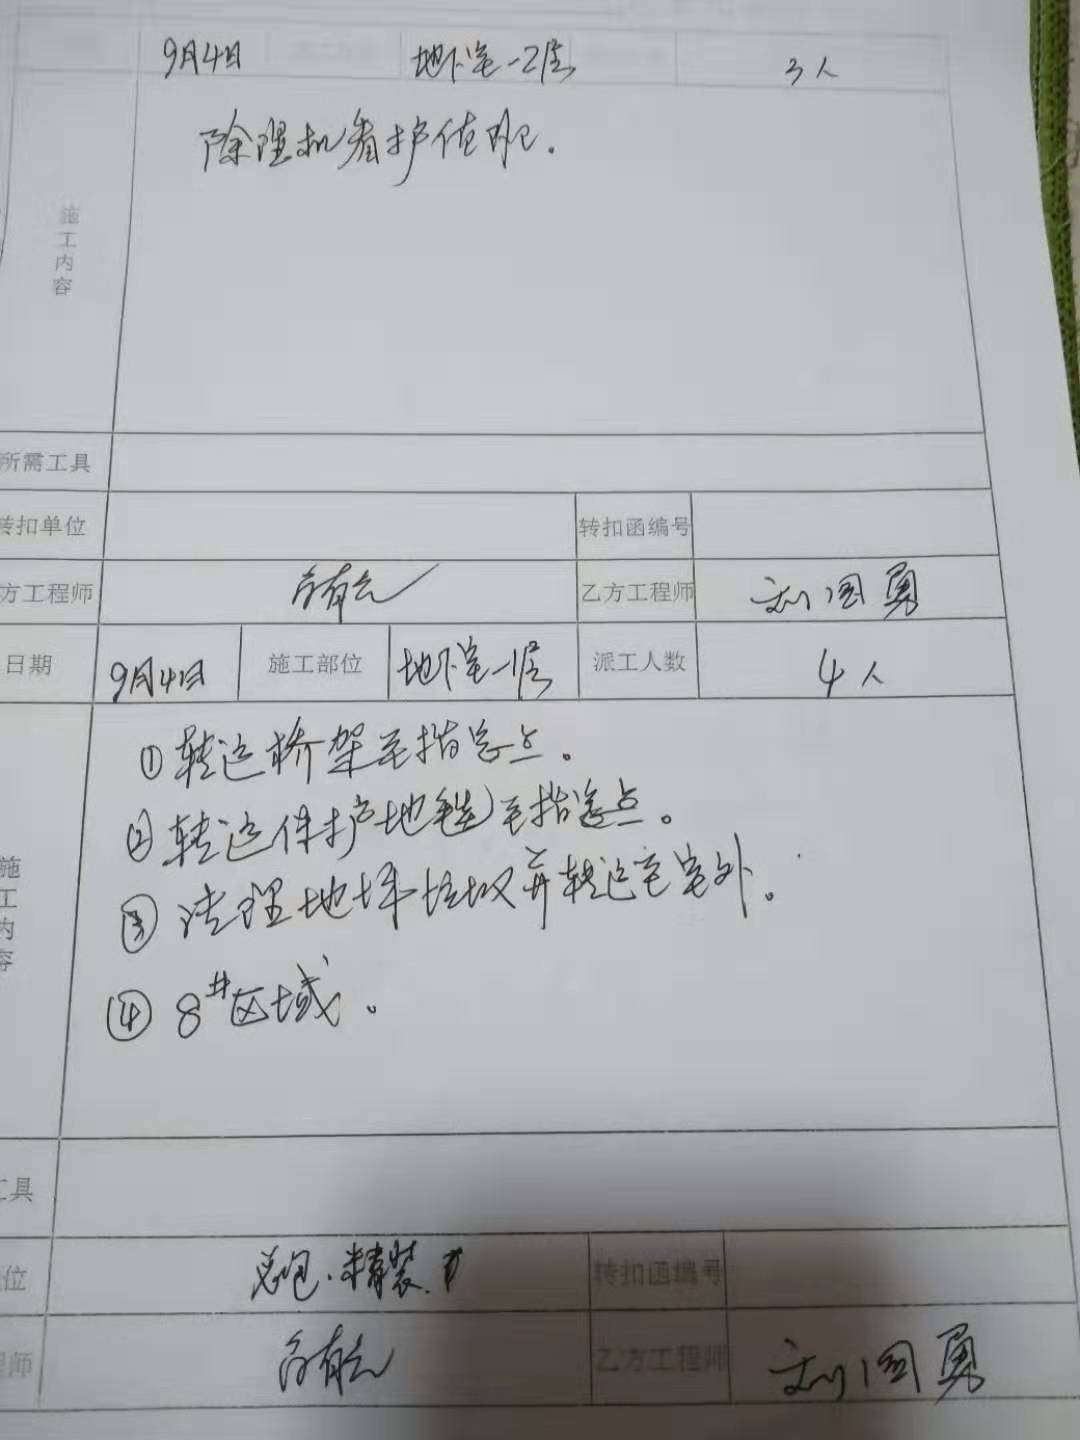 9月4日 地下室-2层 3人
除湿机看护值班.
施工内容
所需工具
转扣单位 转扣函编号
方工程师 乙方工程师 刘国勇
日期 9月4日 施工部位 地下室-1层 派工人数 4人
①转运桥架至指定点。
②转运保护地毯至指定点。
③清理地坪垃圾并转运至室外。
④8#区域。
施工内容
工具
位 总包.精装. 转扣函编号
程师 乙方工程师 刘国勇